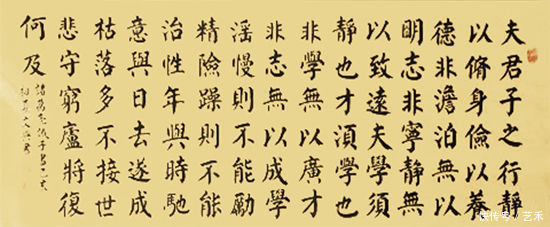 夫君子之行靜
以脩身儉以養
德非澹泊無以
明志非寧靜無
以致遠夫學須
靜也才湏學也
非學無以廣才
非志無以成學
滛慢則不能勵
精險躁則不能
治性年與時馳
意與日去遂成
枯落多不接世
悲守窮廬將復
何及
諸葛亮誡子書
快传号/艺禾